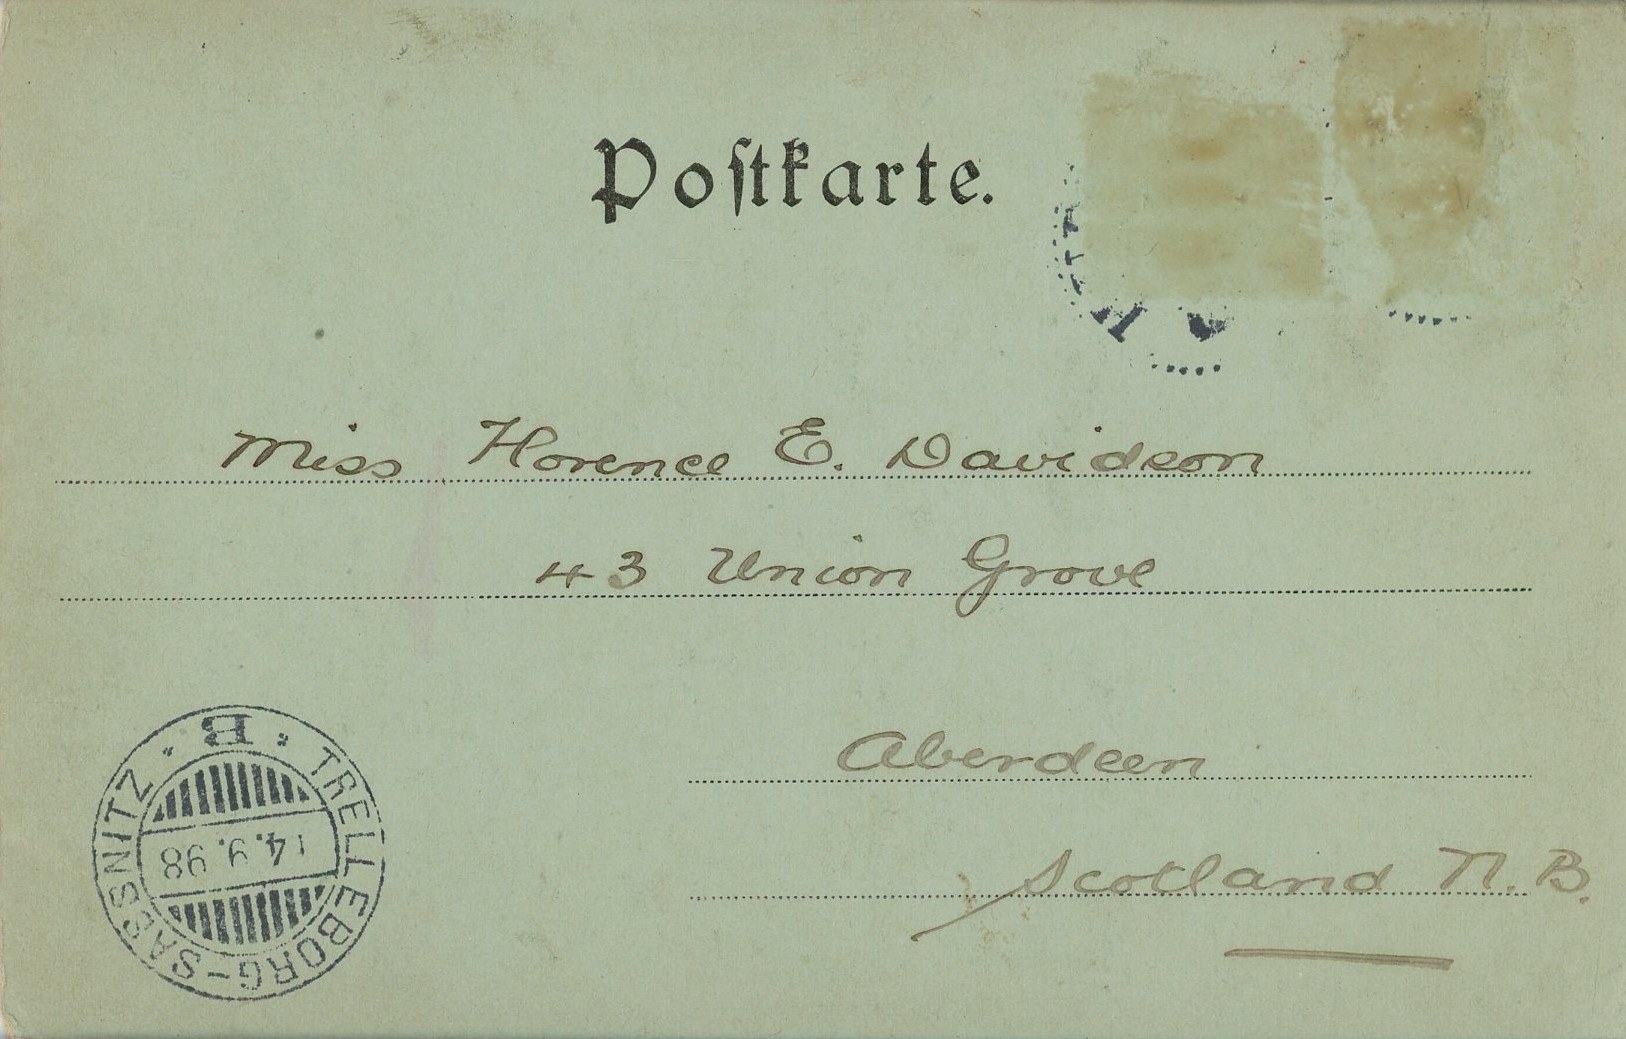 Poſtkarte.
Miss Florence E. Davidson
43 Union Grove
Aberdeen
Scotland N. B.
TRELLEBORG-SASSNITZ
14.9.98
B